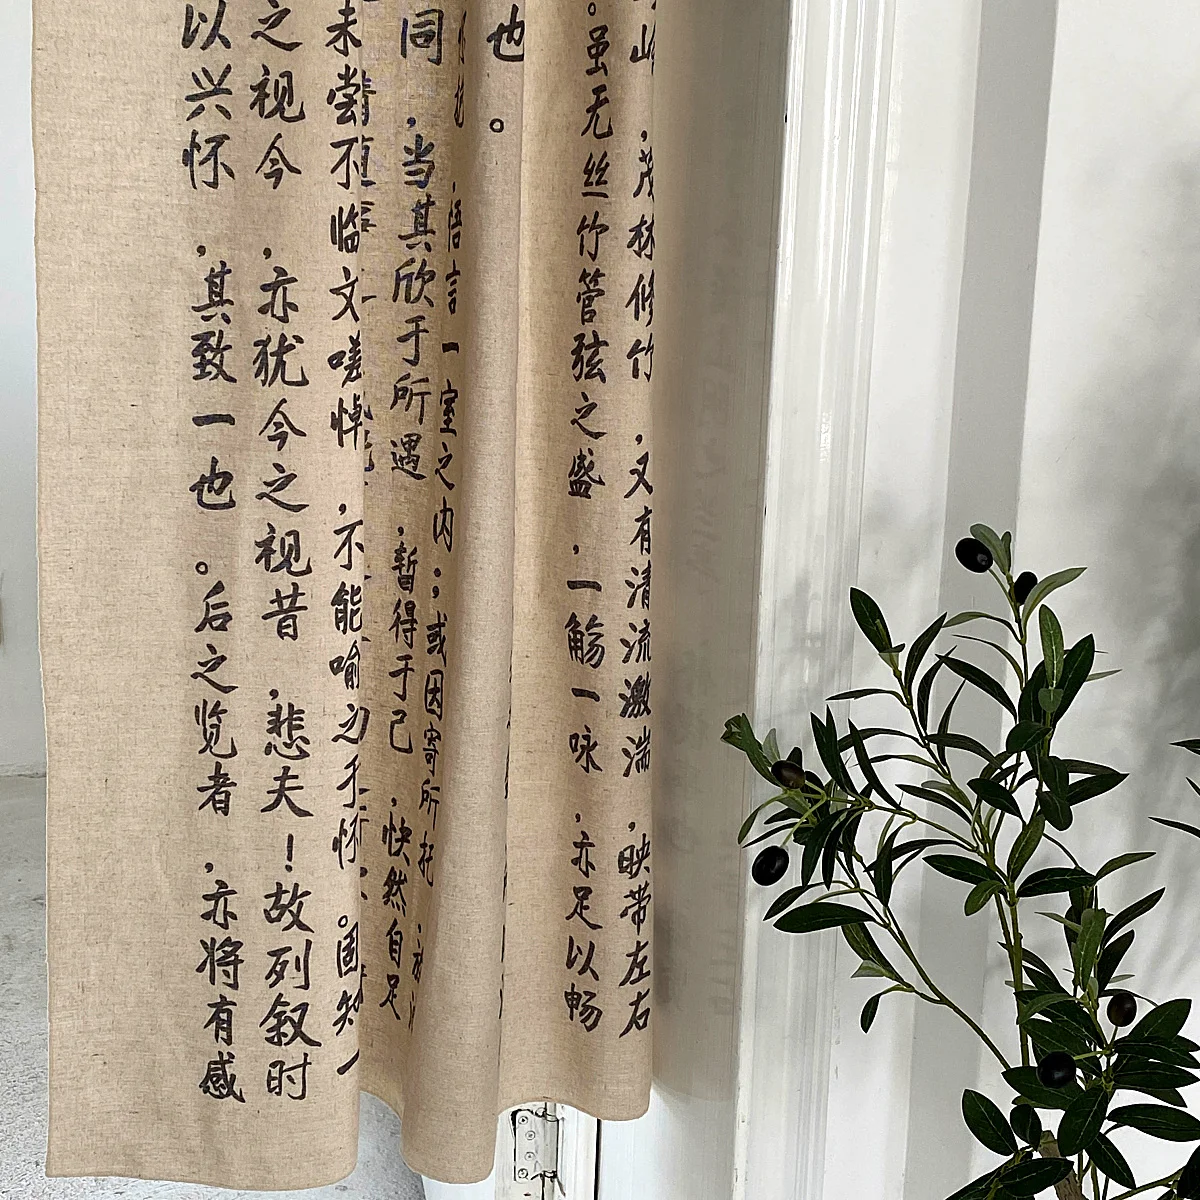 岭，茂林修竹，又有清流激湍，映带左右
。虽无丝竹管弦之盛，一觞一咏，亦足以畅
也。
，悟言一室之内；或因寄所托，放
同，当其欣于所遇，暂得于己，快然自足
未尝不临文嗟悼，不能喻之于怀。固知一
之视今，亦犹今之视昔，悲夫！故列叙时
以兴怀，其致一也。后之览者，亦将有感